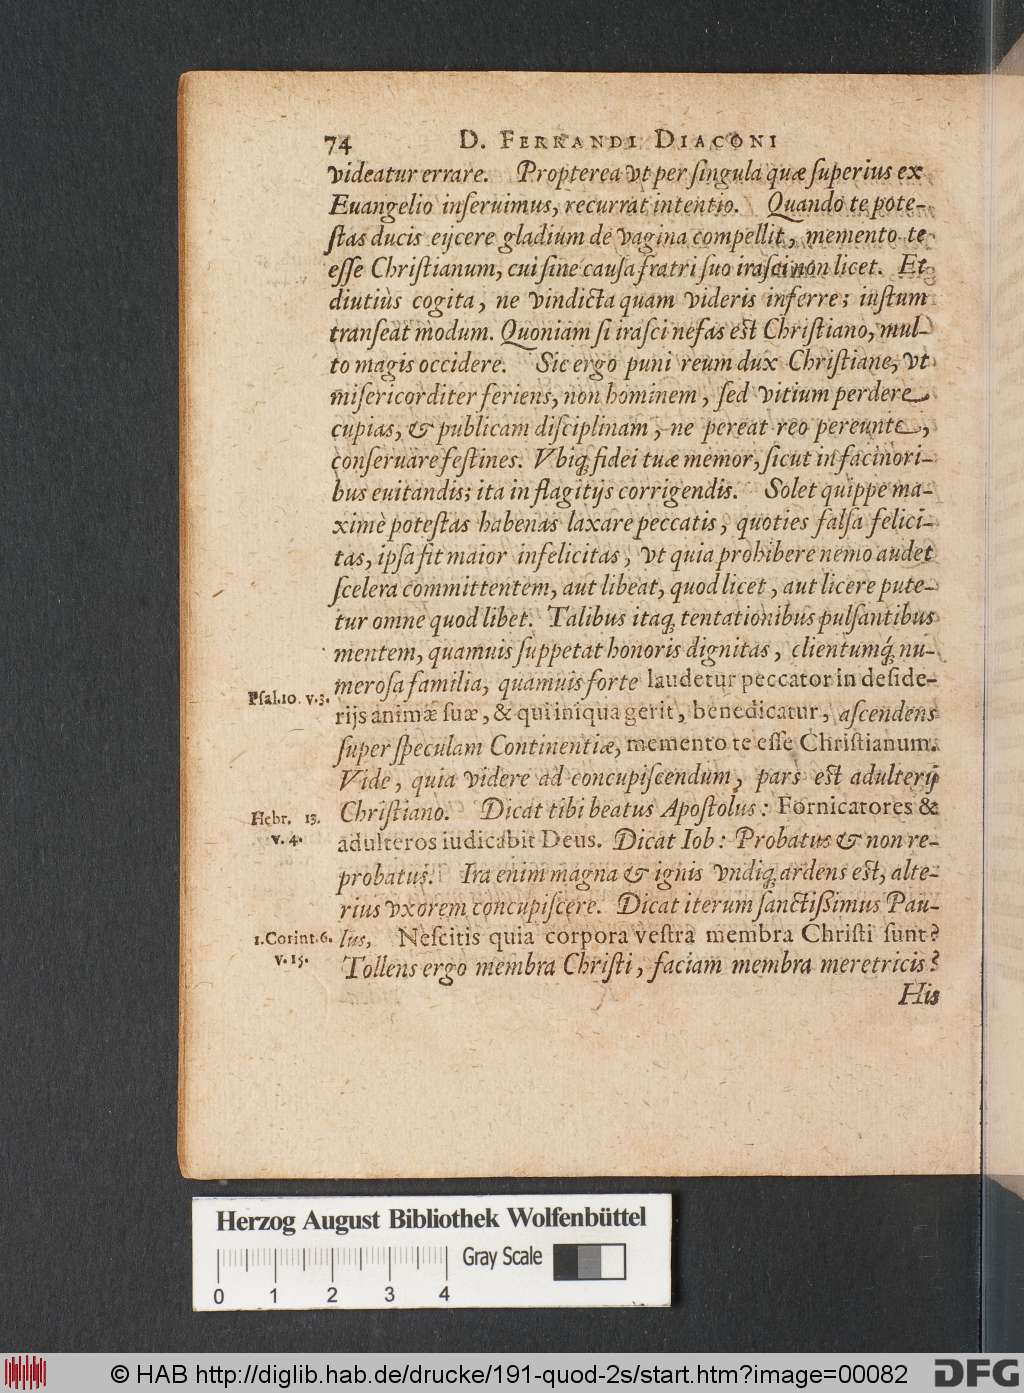 74 D. FERRANDI DIACONI
videatur errare. Propterea vt per ſingula quæ ſuperius ex
Euangelio inſeruimus, recurrat intentio. Quando te pote-
ſtas ducis eijcere gladium de vagina compellit, memento te
eſſe Chriſtianum, cui ſine cauſa fratri ſuo iraſci non licet. Et
diutiùs cogita, ne vindicta quam videris inferre; iuſtum
tranſeat modum. Quoniam ſi iraſci nefas eſt Chriſtiano, mul-
to magis occidere. Sic ergo puni reum dux Chriſtiane, vt
miſericorditer feriens, non hominem, ſed vitium perdere
cupias, & publicam diſciplinam, ne pereat reo pereunte,
conſeruare feſtines. Vbiq; fidei tuæ memor, ſicut in facinori-
bus euitandis; ita in flagitijs corrigendis. Solet quippe ma-
ximè poteſtas habenas laxare peccatis, quoties falſa felici-
tas, ipſa fit maior infelicitas, vt quia prohibere nemo audet
ſcelera committentem, aut libeat, quod licet, aut licere pute-
tur omne quod libet. Talibus itaq; tentationibus pulſantibus
mentem, quamuis ſuppetat honoris dignitas, clientumq́; nu-
Pſal.10. v.3. meroſa familia, quamuis forte laudetur peccator in deſide-
rijs animæ ſuæ, & qui iniqua gerit, benedicatur, aſcendens
ſuper ſpeculam Continentiæ, memento te eſſe Chriſtianum.
Vide, quia videre ad concupiſcendum, pars eſt adulterij
Hebr. 13. Chriſtiano. Dicat tibi beatus Apoſtolus: Fornicatores &
v.4. adulteros iudicabit Deus. Dicat Iob: Probatus & non re-
probatus. Ira enim magna & ignis vndiq; ardens eſt, alte-
rius vxorem concupiſcere. Dicat iterum ſanctiſſimus Pau-
1.Corint.6. lus, Neſcitis quia corpora veſtra membra Chriſti ſunt?
v.15. Tollens ergo membra Chriſti, faciam membra meretricis?
His
Herzog August Bibliothek Wolfenbüttel
Gray Scale
0 1 2 3 4
© HAB http://diglib.hab.de/drucke/191-quod-2s/start.htm?image=00082 DFG